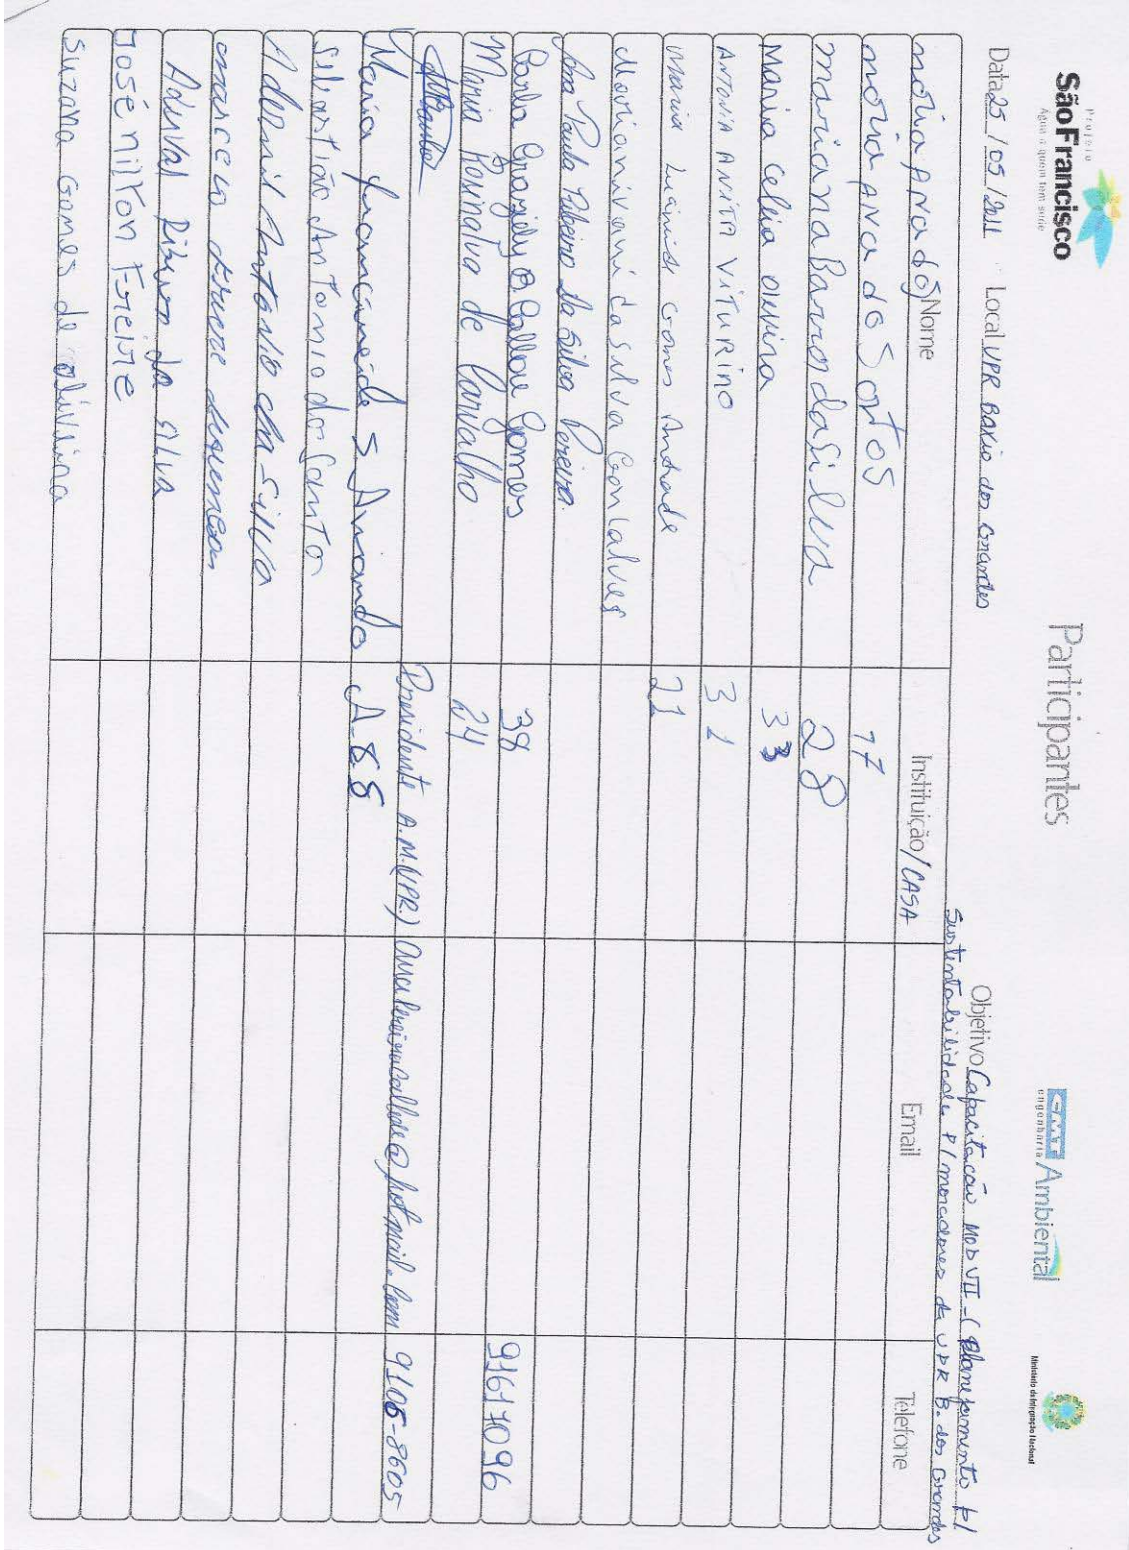 Projeto
São Francisco
Água a quem tem sede
Participantes
CMT Ambiental
engenharia
Ministério da Integração Nacional
Data 25/05/2011 Local VPR Baxio dos Grandes Objetivo Capacitação MOD VII - (Planejamento p/
Sustentabilidade p/ moradores da VPR B. dos Grandes
Nome Instituição/CASA Email Telefone
maria ana dos
maria ana do Santos 17
mariana Barros da Silva 28
Maria Celia oliveira 33
ANTONIA ANITA VITURINO 31
Maria Lucineide Gomes Andrade 21
Maria nivani da silva Gonçalves
Ana Paula Ribeiro da Silva Pereira
Carla Grazielly P. Callou Gomes 38 91617096
Maria Rosinalva de Carvalho 24
Presidente A.M.(VPR.) @hotmail.com 9106-8605
Maria Francineide S Amando A-88
Sebastião Antonio dos Santo
Ademil Antonio da Silva
Aderval Ribeiro da Silva
José Milton Freire
Suzana Gomes de oliveira